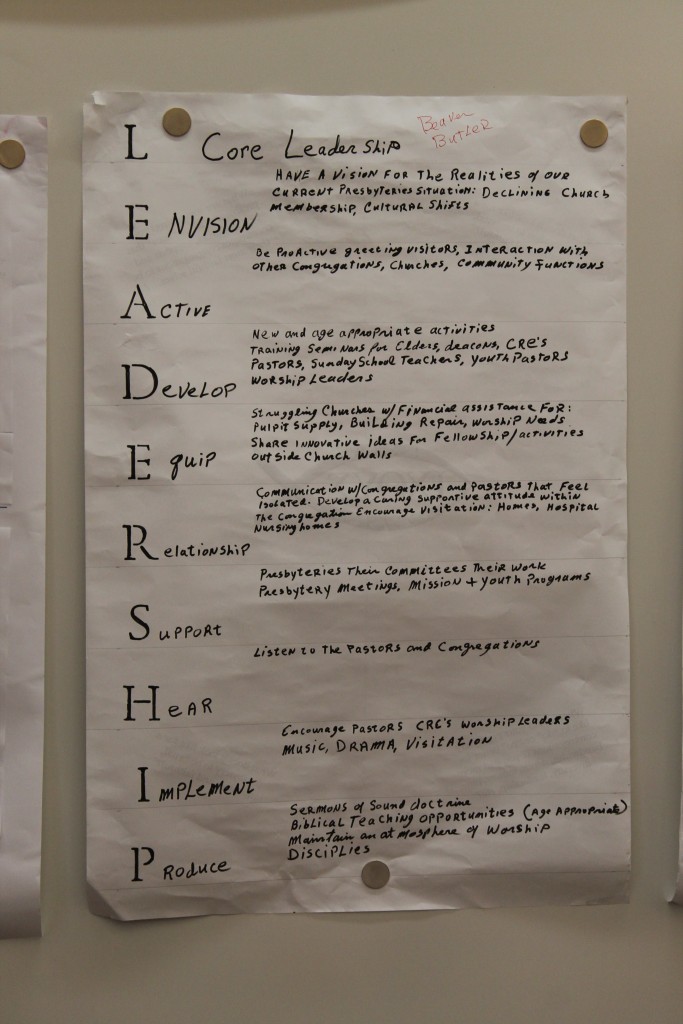 Beaver
Butler
L Core Leadership
HAVE A Vision For The Realities of our
current Presbyteries Situation: Declining Church
membership, Cultural Shifts
ENVISION
Be ProActive greeting visitors, Interaction with
other Congregations, Churches, Community Functions
Active
New and age appropriate activities
Training Seminars for Elders, deacons, CRE's
Pastors, Sunday School Teachers, Youth Pastors
Worship Leaders
Develop
Struggling Churches w/Financial assistance For:
Pulpit Supply, Building Repair, Worship Needs
Share Innovative ideas For Fellowship/activities
outside Church Walls
Equip
Communication w/congregations and Pastors That Feel
Isolated. Develop a Caring Supportive attitude within
The Congregation Encourage Visitation: Homes, Hospital
Nursing homes
Relationship
Presbyteries Their Committees Their Work
Presbytery Meetings, Mission + Youth Programs
Support
Listen to The Pastors and Congregations
Hear
Encourage Pastors CRE's Worship Leaders
Music, DRAMA, Visitation
Implement
Sermons of Sound doctrine
Biblical Teaching Opportunities (Age Appropriate)
Maintain an atmosphere of Worship
Disciplies
Produce